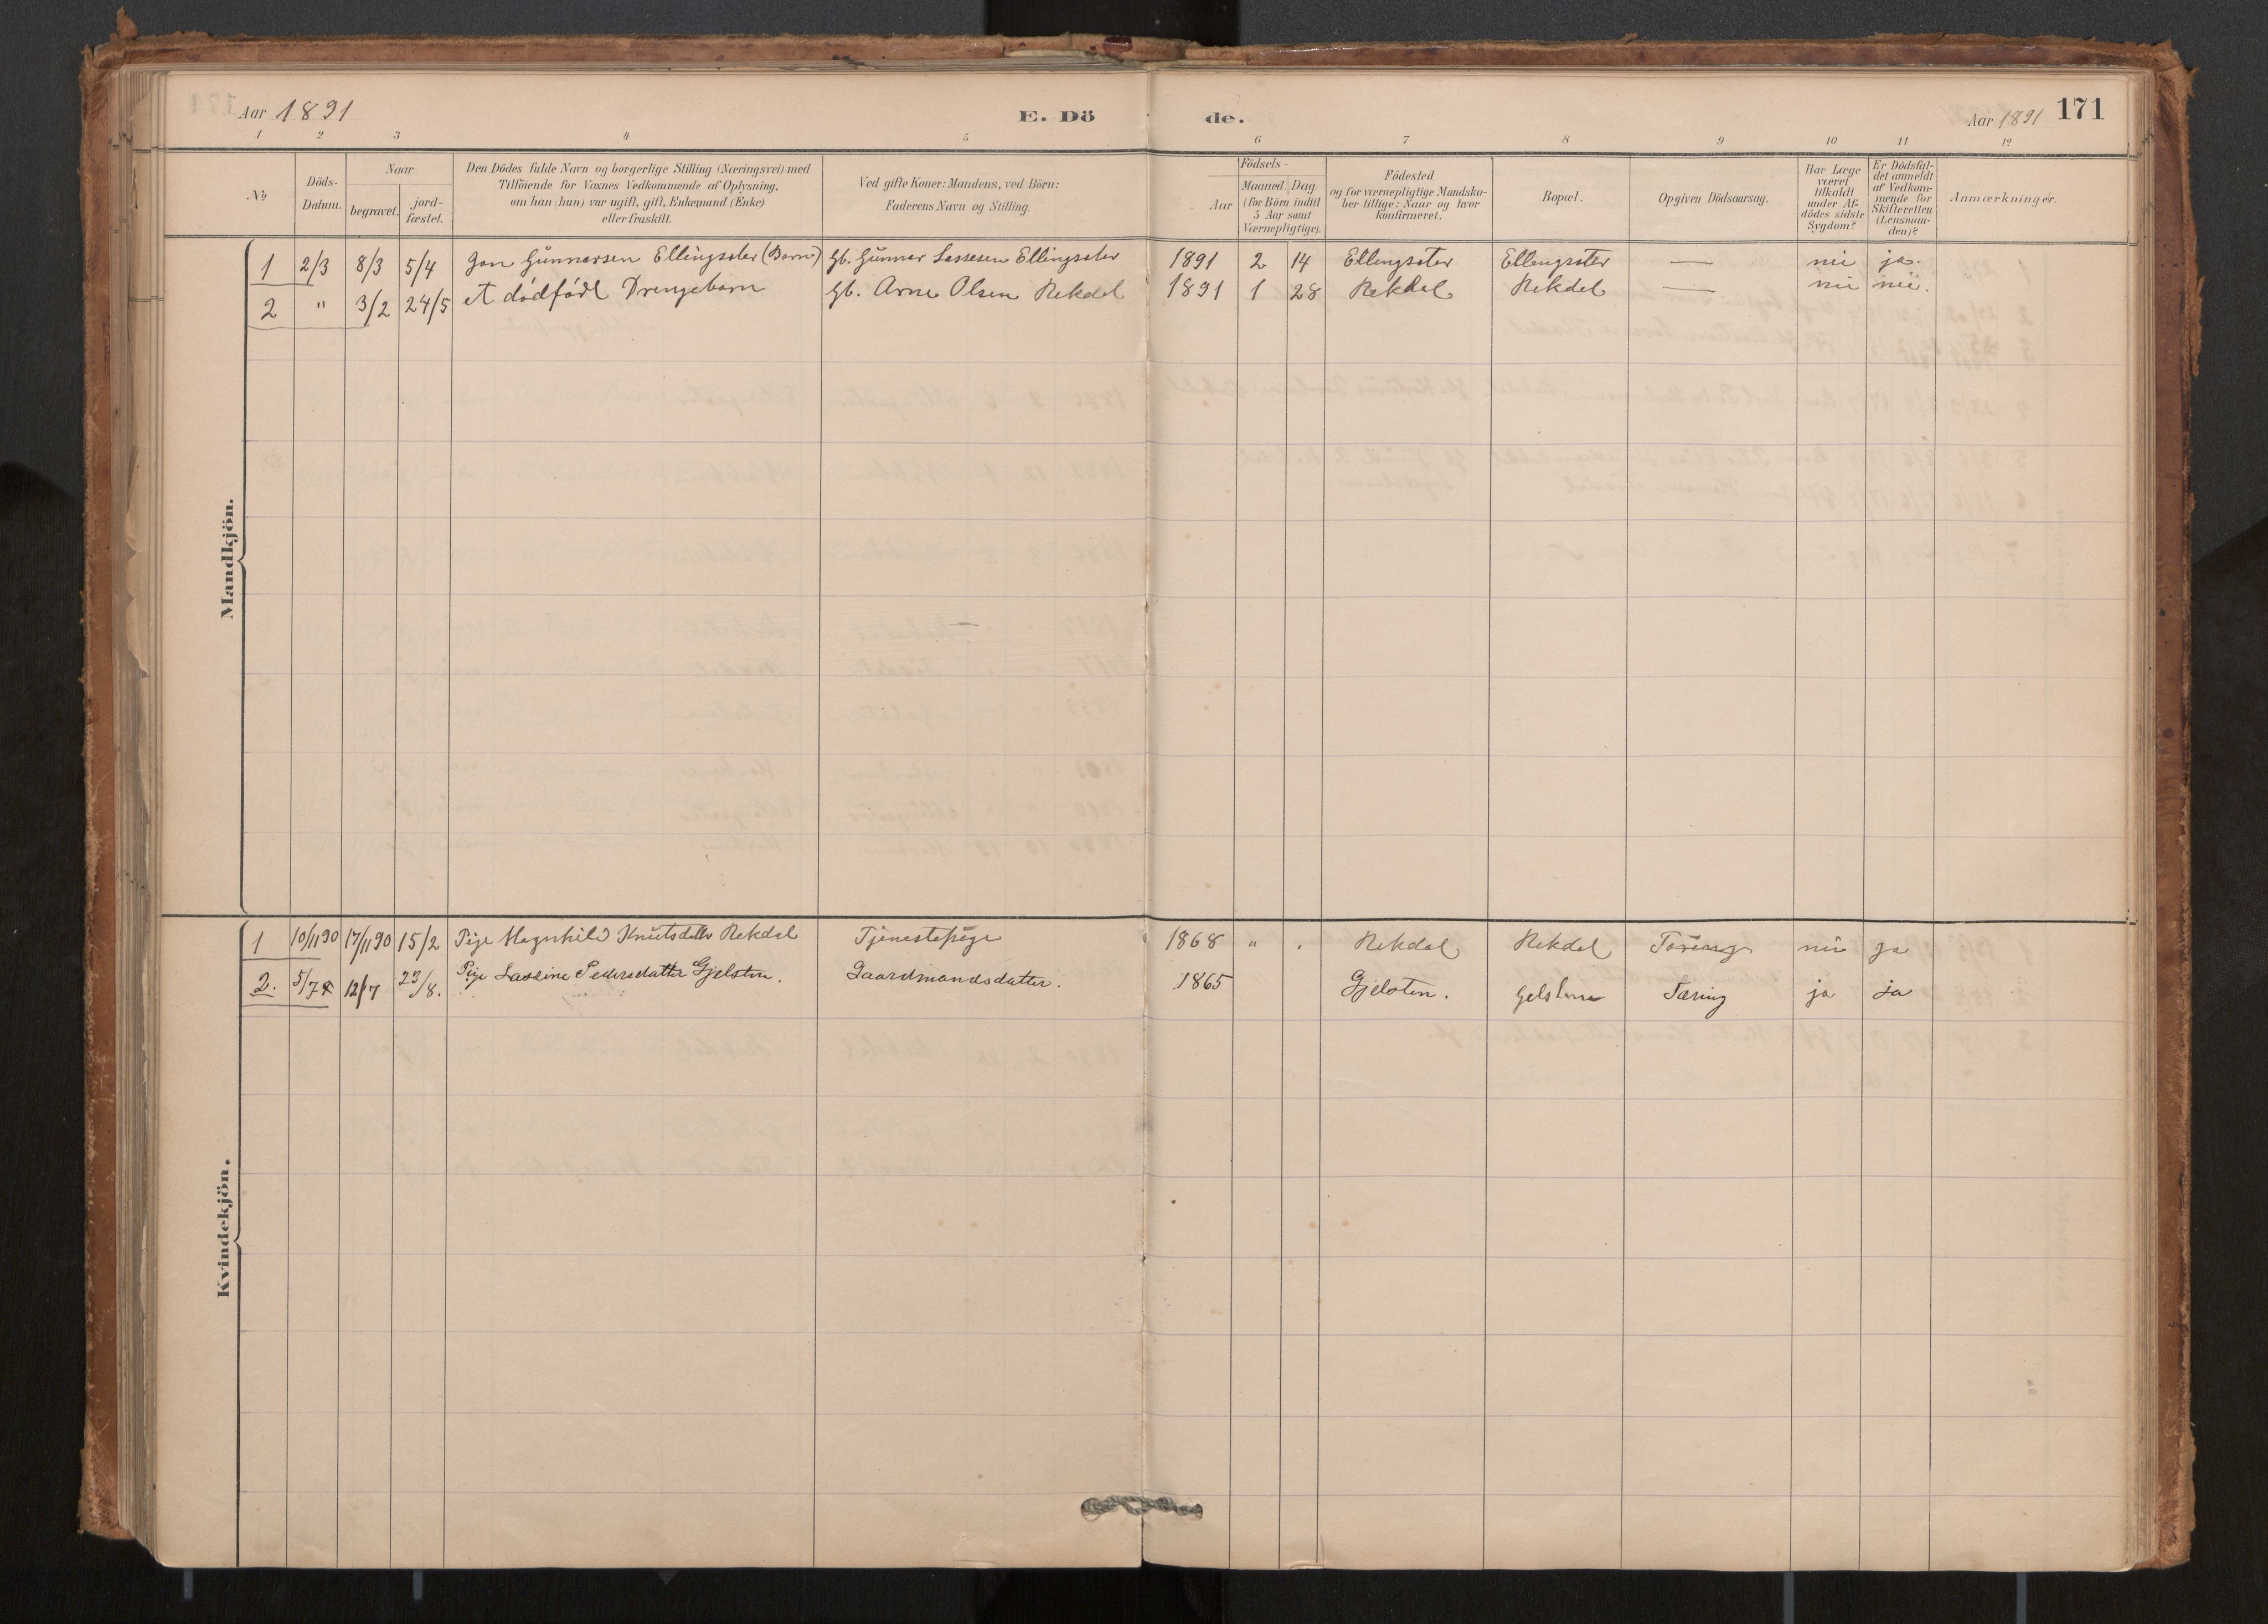 Aar 1891 E. Dö de. Aar 1891 171
1 2 3 4 5 6 7 8 9 10 11 12
No.
Döds-
Datum.
Naar
begravet.
jord-
fæstet.
Den Dödes fulde Navn og borgerlige Stilling (Næringsvei) med
Tilföiende for Voxnes Vedkommende af Oplysning,
om han (hun) var ugift, gift, Enkemand (Enke)
eller fraskilt.
Ved gifte Koner: Mandens, ved Börn:
Faderens Navn og Stilling.
Födsels-
Aar
Maaned. Dag.
(for Börn indtil
5 Aar samt
Værnepligtige).
Födested
og for værnepligtige Mandska-
ber tillige: Naar og hvor
konfirmeret.
Bopæl.
Opgiven Dödsaarsag.
Har Læge
været
tilkaldt
under Af-
dödes sidste
Sygdom?
Er Dödsfal-
det anmeldt
af Vedkom-
mende for
Skifteretten
(Lensman-
den)?
Anmærkninger.
Mandkjön.
1 2/3 8/3 5/4 Jon Gunnarsen Ellingsæter (Barn) Gb. Gunnar Lassesen Ellingsæter 1891 2 14 Ellingsæter Ellingsæter — nei ja.
2 " 3/2 24/5 et dödfödt Drengebarn Gb. Arne Olsen Rekdal 1891 1 28 Rekdal Rekdal — nei nei.
Kvindekjön.
1 10/11 90 17/11 90 15/2 Pige Magnhild Knutsdatter Rekdal Tjenestepige 1868 " . Rekdal Rekdal Tæring nei ja
2. 5/7 12/7 23/8. Pige Lassine Pedersdatter Gjelsten. Gaardmandsdatter. 1865 Gjelsten. Gelsten Tæring ja ja